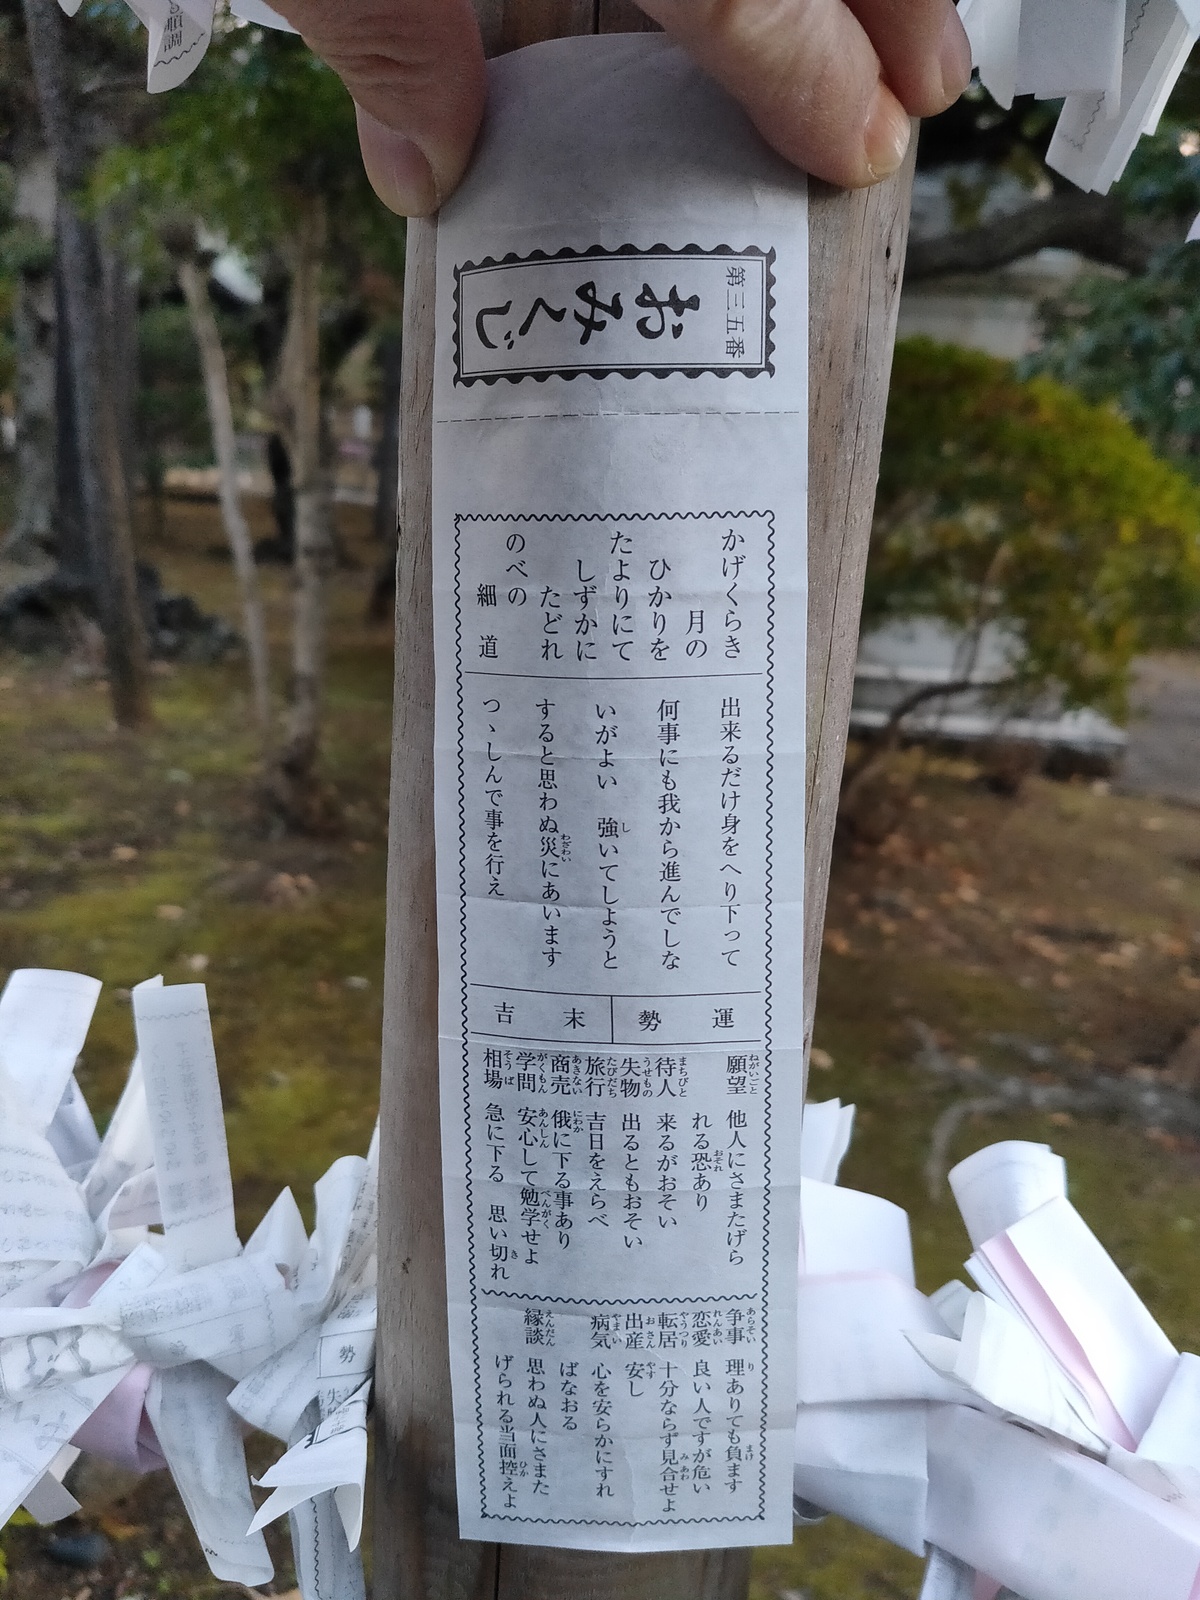 第三五番
おみくじ
かげくらき
月の
ひかりを
たよりにて
しずかに
たどれ
のべの
細道
出来るだけ身をへり下って
何事にも我から進んでしな
いがよい 強いてしようと
すると思わぬ災にあいます
つゝしんで事を行え
運勢 末吉
願望 他人にさまたげら
れる恐あり
待人 来るがおそい
失物 出るともおそい
旅行 吉日をえらべ
商売 俄に下る事あり
学問 安心して勉学せよ
相場 急に下る 思い切れ
争事 理ありても負ます
恋愛 良い人ですが危い
転居 十分ならず見合せよ
出産 安し
病気 心を安らかにすれ
ばなおる
縁談 思わぬ人にさまた
げられる当面控えよ
順調
勢